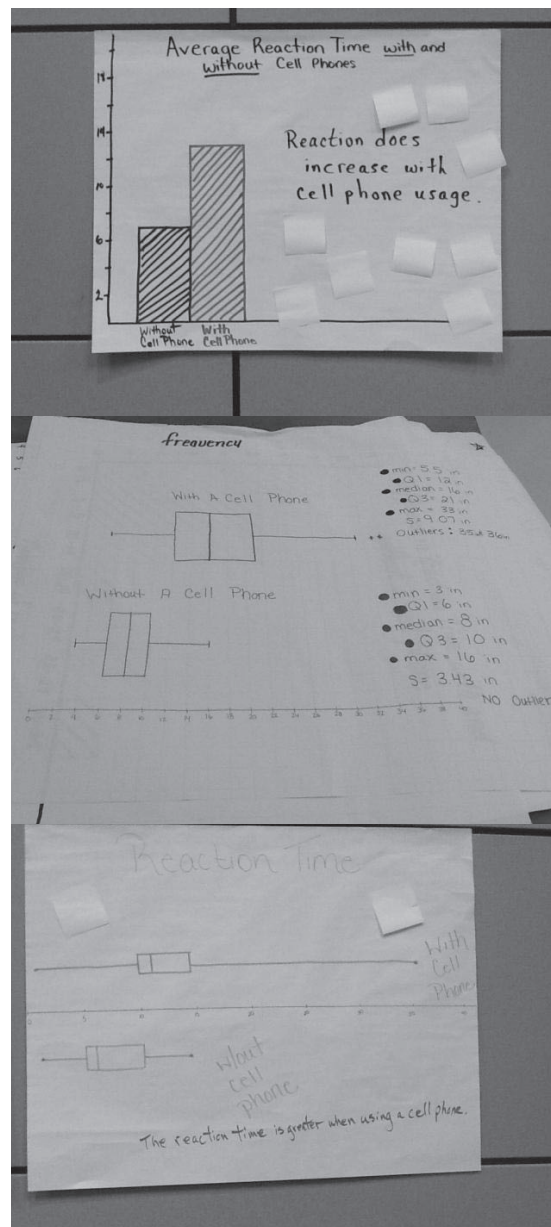 Average Reaction Time with and
without Cell Phones
Reaction does
increase with
cell phone usage.
18
14
10
6
2
Without
Cell Phone
With
Cell Phone
frequency
With A Cell Phone
min = 5.5 in
Q1 = 12 in
median = 16 in
Q3 = 21 in
max = 33 in
S = 9.07 in
Outliers: 35 &
Without A Cell Phone
min = 3 in
Q1 = 6 in
median = 8 in
Q3 = 10 in
max = 16 in
S = 3.43 in
NO Outlier
0 2 4 6 8 10 12 14 16 18 20 22 24 26 28 30 32 34 36 38 40
Reaction Time
With
Cell
Phone
0 5 10
w/out
cell
phone
The reaction time is greater when using a cell phone.